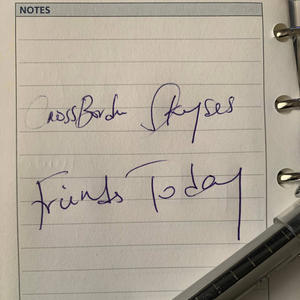 NOTES
CrossBorder Skypes
Friends Today